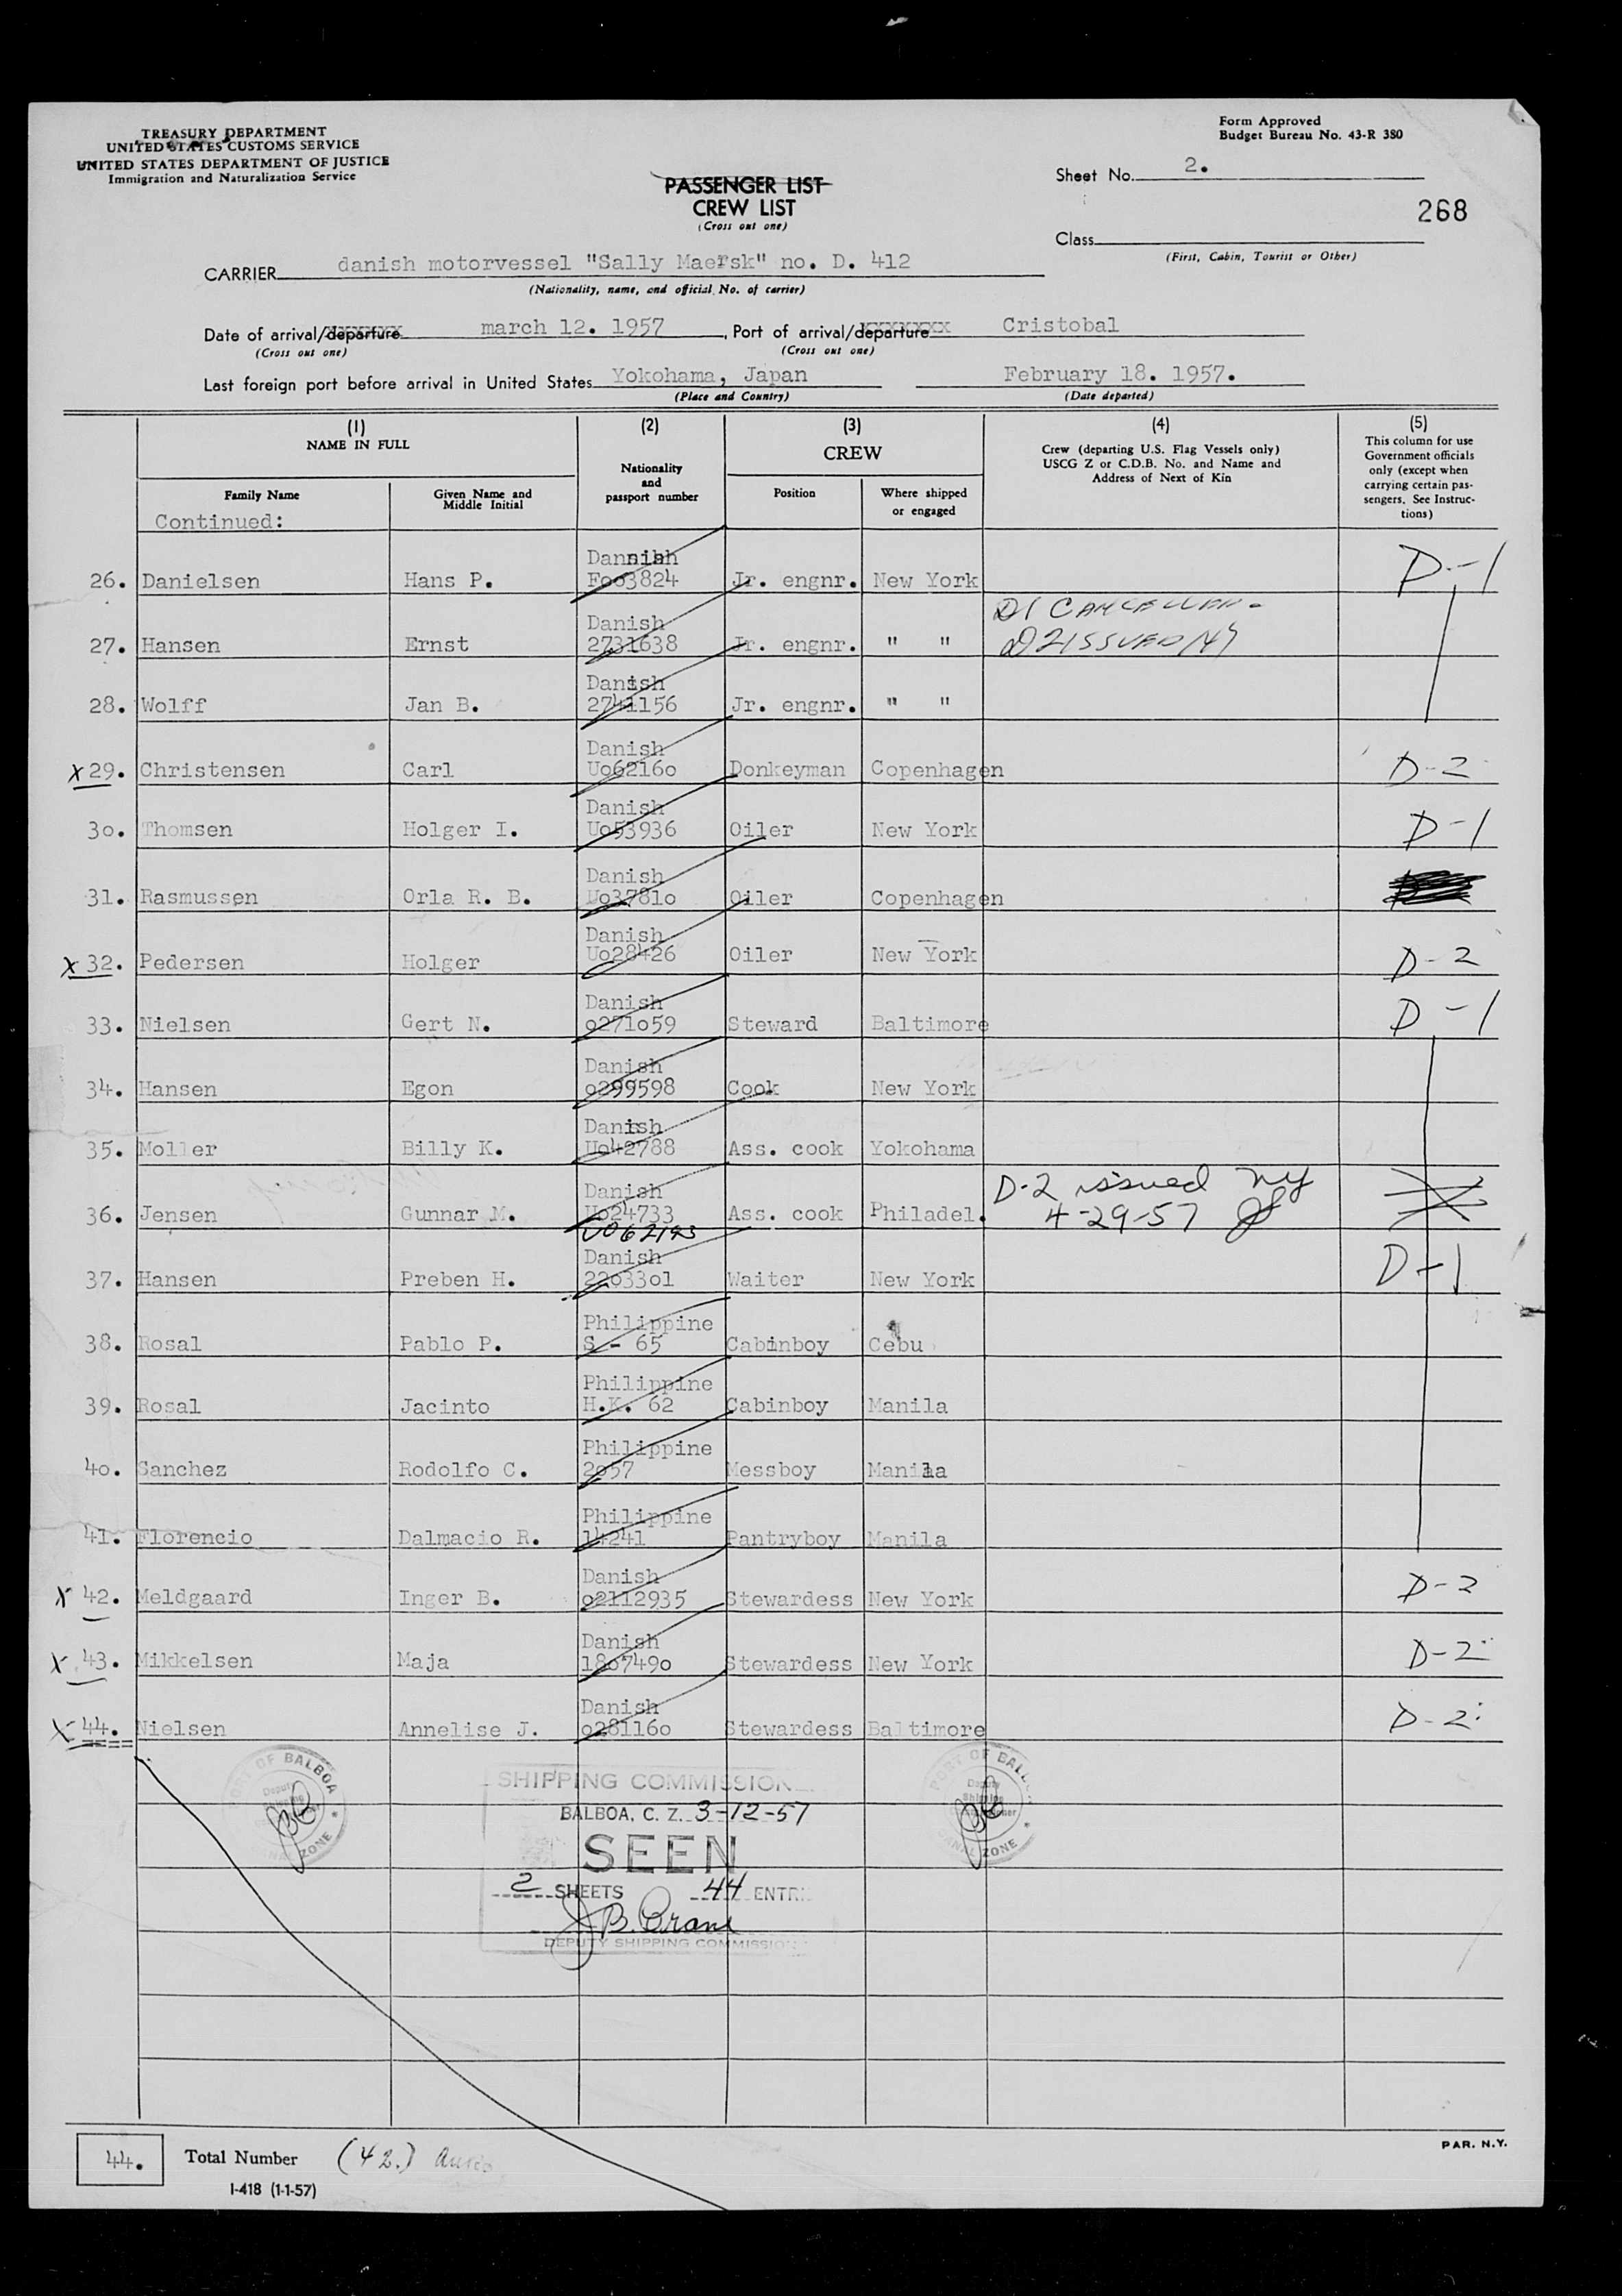 TREASURY DEPARTMENT
UNITED STATES CUSTOMS SERVICE
UNITED STATES DEPARTMENT OF JUSTICE
Immigration and Naturalization Service
Form Approved
Budget Bureau No. 43-R 380
PASSENGER LIST
CREW LIST
(Cross out one)
Sheet No. 2.
268
Class
(First, Cabin, Tourist or Other)
CARRIER danish motorvessel "Sally Maersk" no. D. 412
(Nationality, name, and official No. of carrier)
Date of arrival/departure march 12. 1957, Port of arrival/departure Cristobal
(Cross out one) (Cross out one)
Last foreign port before arrival in United States Yokohama, Japan February 18. 1957.
(Place and Country) (Date departed)
(1) NAME IN FULL
Family Name
Given Name and Middle Initial
(2)
Nationality and passport number
(3)
CREW
Position
Where shipped or engaged
(4)
Crew (departing U.S. Flag Vessels only)
USCG Z or C.D.B. No. and Name and
Address of Next of Kin
(5)
This column for use
Government officials
only (except when
carrying certain pas-
sengers. See Instruc-
tions)
Continued:
26. Danielsen Hans P. Dannish Foo3824 Jr. engnr. New York D-1
27. Hansen Ernst Danish 2731638 Jr. engnr. " " D1 CANCELLED - D2 ISSUED NY
28. Wolff Jan B. Danish 2741156 Jr. engnr. " "
X 29. Christensen Carl Danish Uo6216o Donkeyman Copenhagen D-2
3o. Thomsen Holger I. Danish Uo53936 Oiler New York D-1
31. Rasmussen Orla R. B. Danish Uo3781o Oiler Copenhagen
X 32. Pedersen Holger Danish Uo28426 Oiler New York D-2
33. Nielsen Gert N. Danish o271o59 Steward Baltimore D-1
34. Hansen Egon Danish o299598 Cook New York
35. Moller Billy K. Danish Uo42788 Ass. cook Yokohama
36. Jensen Gunnar M. Danish Uo24733 U062193 Ass. cook Philadel. D-2 issued NY 4-29-57
37. Hansen Preben H. Danish 22o33o1 Waiter New York D-1
38. Rosal Pablo P. Philippine S - 65 Cabinboy Cebu
39. Rosal Jacinto Philippine H.K. 62 Cabinboy Manila
4o. Sanchez Rodolfo C. Philippine 2o57 Messboy Manila
41. Florencio Dalmacio R. Philippine 14241 Pantryboy Manila
X 42. Meldgaard Inger B. Danish o2112935 Stewardess New York D-2
X 43. Mikkelsen Maja Danish 18o749o Stewardess New York D-2
X 44. Nielsen Annelise J. Danish o28116o Stewardess Baltimore D-2
PORT OF BALBOA
Deputy
Shipping
CANAL ZONE
SHIPPING COMMISSION
BALBOA, C. Z. 3-12-57
SEEN
2 SHEETS 44 ENTRI
J.B. Crane
DEPUTY SHIPPING COMMISSIO
PORT OF BAL
Deputy
Shipping
ZONE
44. Total Number (42.)
I-418 (1-1-57)
PAR. N.Y.